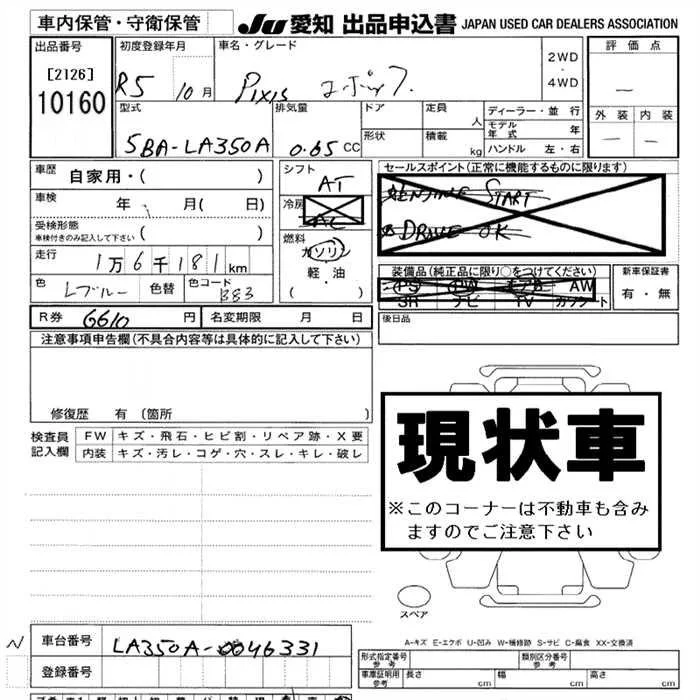 車内保管・守衛保管 JU 愛知 出品申込書 JAPAN USED CAR DEALERS ASSOCIATION
出品番号 初度登録年月 車名・グレード 2WD・4WD 評価点
[2126] 10160 R5 10月 Pixis エポック —
型式 排気量 ドア 定員 人 ディーラー・並行 外装 内装
5BA-LA350A 0.65 CC 形状 積載 kg モデル年式 年 — —
ハンドル 左・右
車歴 自家用・( ) シフト AT セールスポイント(正常に機能するものに限ります)
車検 年 月( 日) 冷房 AC ENGINE START
受検形態 車検付きのみ記入して下さい ( ) DRIVE OK
走行 1万6千181km 燃料 ガソリン 軽・油 ( ) 装備品(純正品に限り○をつけてください) 新車保証書
色 Lブルー 色替 色コード B83 PS PW AW 有・無
SR ナビ TV カセット
R券 6610 円 名変期限 月 日 後日品
注意事項申告欄(不具合内容等は具体的に記入して下さい)
修復歴 有(箇所 )
現状車
※このコーナーは不動車も含みますのでご注意下さい
検査員記入欄 FW キズ・飛石・ヒビ割・リペア跡・X要
内装 キズ・汚レ・コゲ・穴・スレ・キレ・破レ
スペア
A-キズ E-エクボ U-凹み W-補修跡 S-サビ C-腐食 XX-交換済
N 車台番号 LA350A-0046331
登録番号
形式指定番号 参考 類別区分番号 参考
車庫証明用 参考 長さ cm 幅 cm 高さ cm